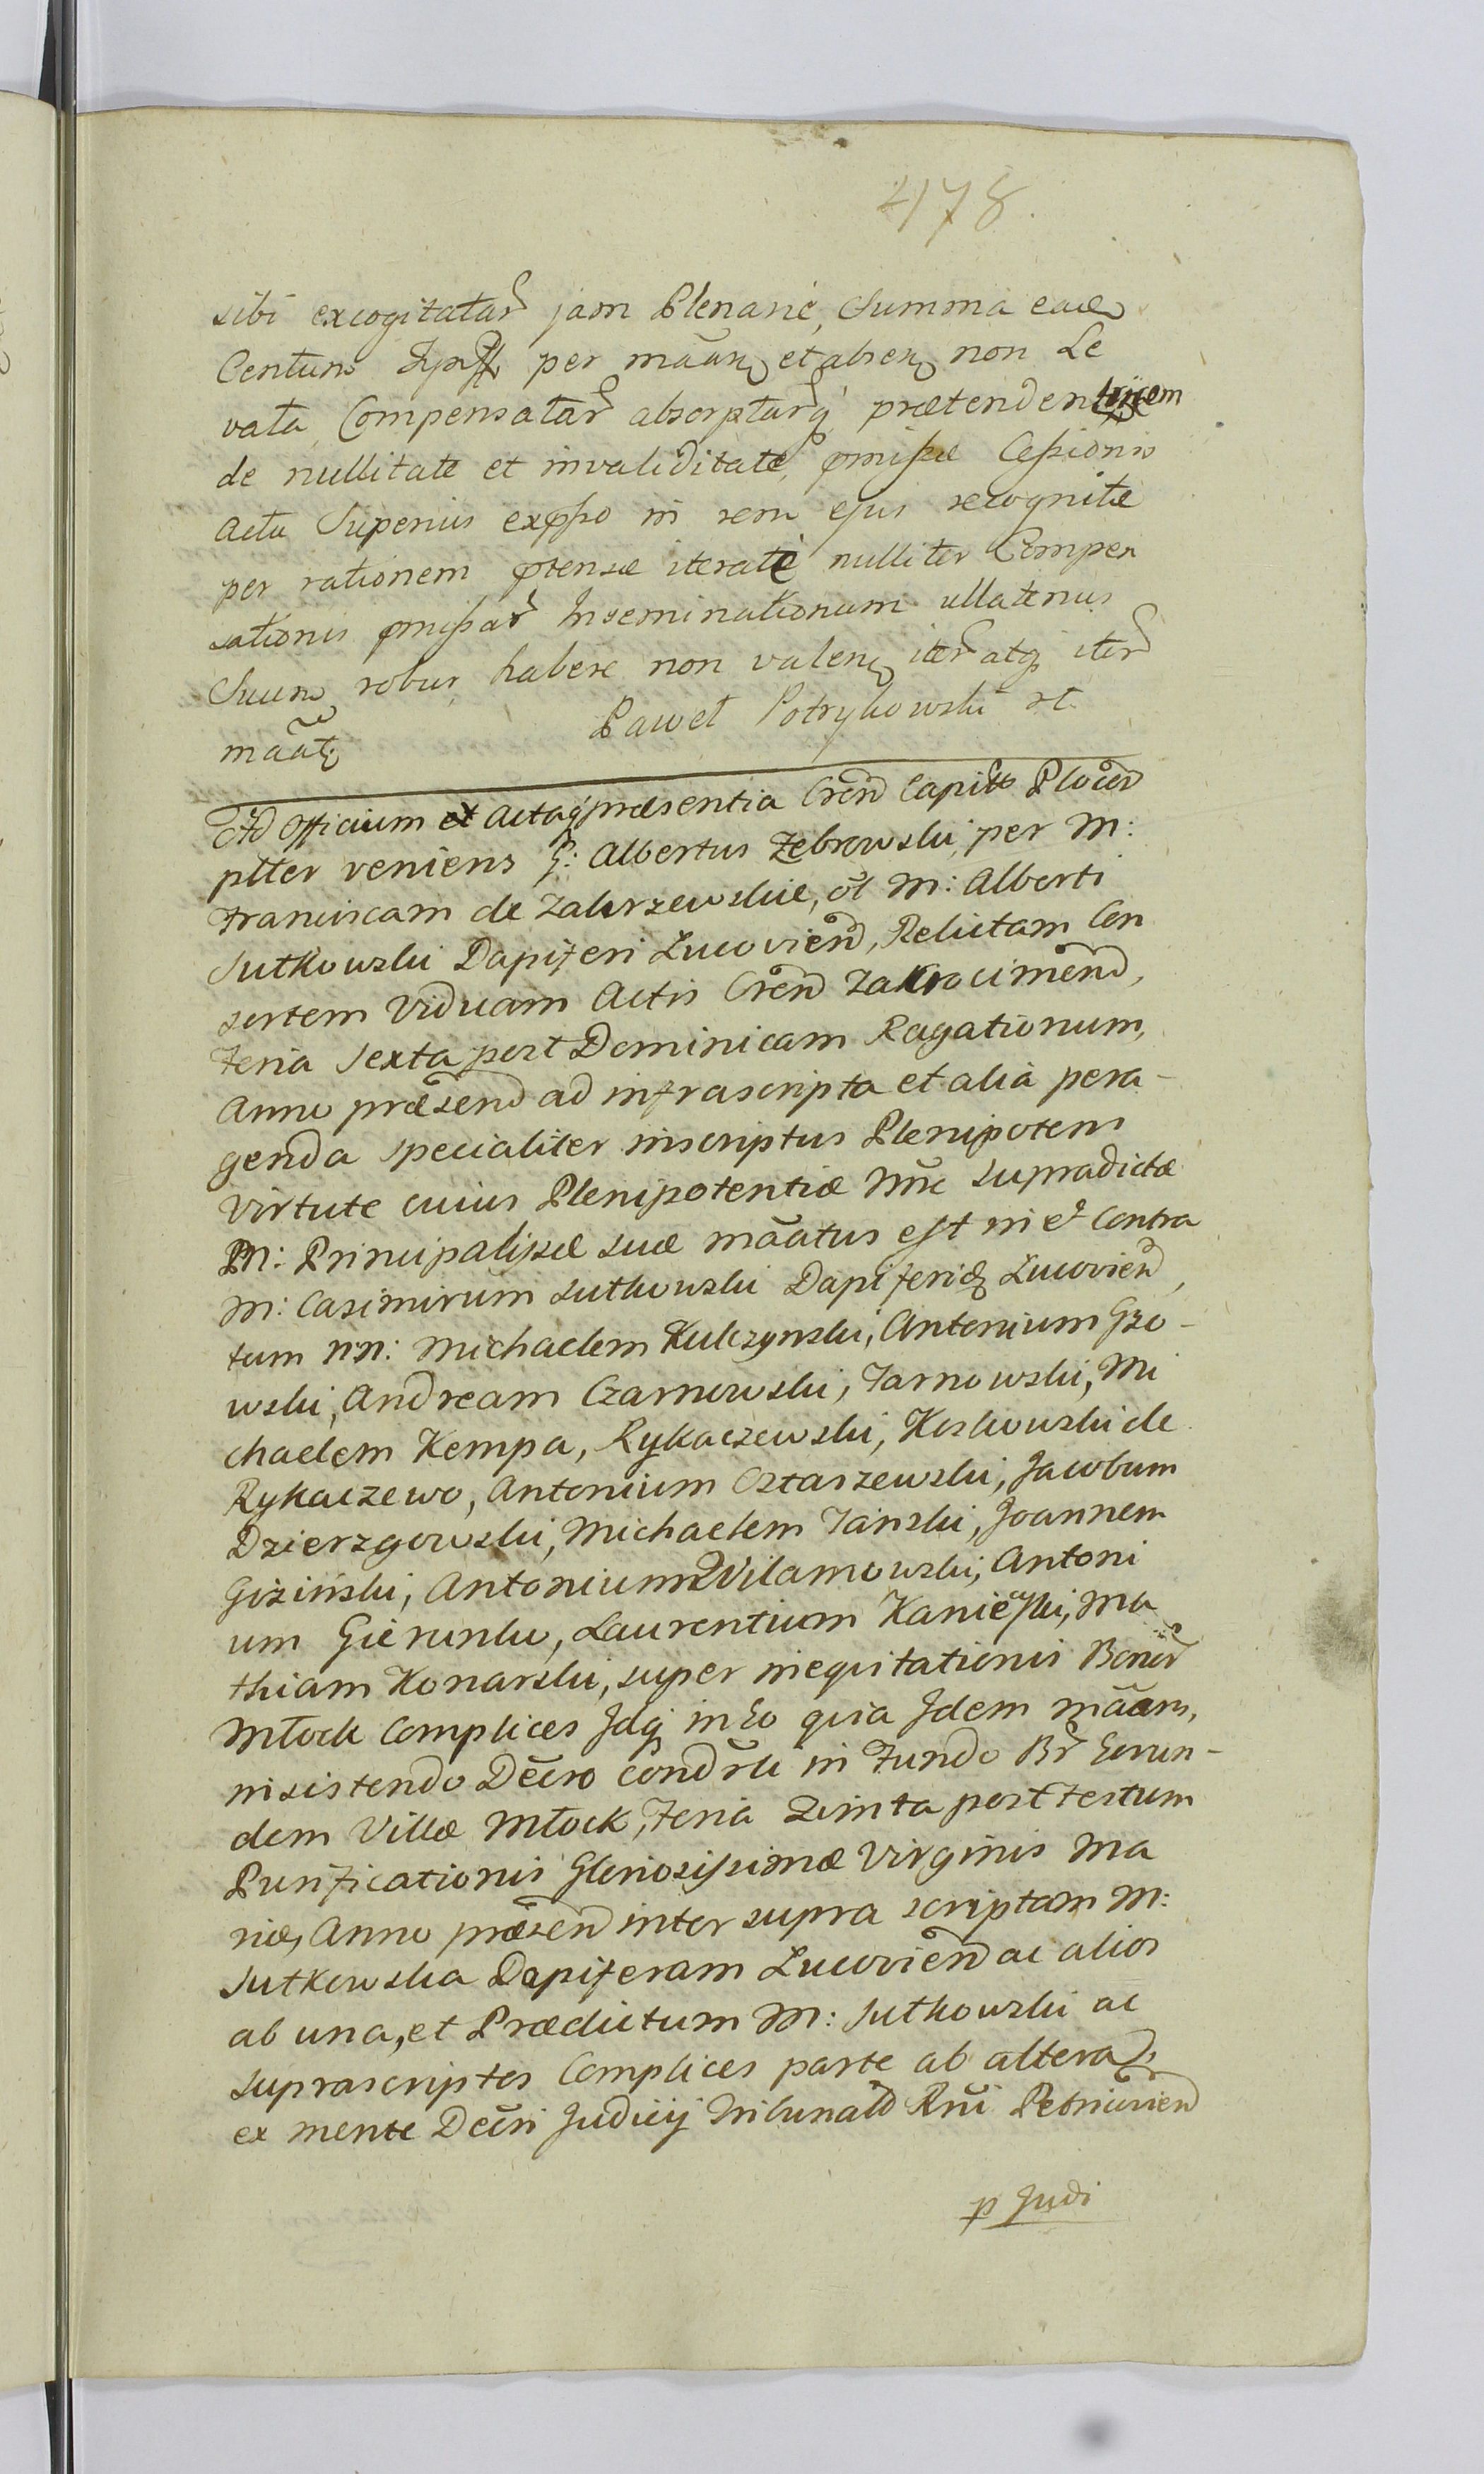 478.
sibi excogitatar jam Plenarie, Summa eade
Centum per mãan et absen non Le
vata Compensatar absorptarq prætendentem
de nullitate et invaliditate, pmissæ Cessionis
actu Superius expsso in rem ejus recognitæ
per rationem ptensæ iteratè nulliter Compen
sationis pmissar Inseminationum ullatenus
Suum robur habere non valen iter atq iter
mãat Paweł Potrykowski
Ad Officium et Actaq præsentia Cren Capitt Plocen
plter veniens G: Albertus Zebrowski, per M:
Franciscam de Zakrzewskie, ol M: Alberti
Sutkowski Dapiferi Lucovien, Relictam Con
sortem Viduam Actis Cren Zakrocimen,
Feria Sexta post Dominicam Rogationum,
Anno præsen ad infrascripta et alia pera-
genda specialiter inscriptus Plenipotens
Virtute cuius Plenipotentiæ Nnē supradictæ
M: Principalissæ suæ mãatus est in et Contra
M: Casimirum Sutkowski Dapiferid Lucovien,
tum NN: Michaelem Kulczynski, Antonium Gzo-
wski, Andream Czarnowski, Tarnowski, Mi
chaelem Kempa, Rykaczewski, Koskowski de
Rykaczewo, Antonium Ostaszewski, Jacobum
Dzierzgowski, Michaelem Tanski, Joannem
Gizinski, Antonium Wilamowski, Antoni
um Laurentium Kanieski, Ma
thiam Konarski, super inequitationis Bonor
Młock Complices Idq in Eo quia Idem mãans,
insistendo Decro condrli in Fundo Br Eorun-
dem Villæ Młock, Feria Quinta post Festum
Purificationis Gloriosissimæ Virginis Ma
riæ, Anno præsen inter supra scriptam M:
Sutkowska Dapiferam Lucovien ac alios
ab una, et Prædictum M: Sutkowski ac
suprascriptos Complices parte ab altera,
ex mente Decri Judicij Tribunal Rni Petricovien
p Judi